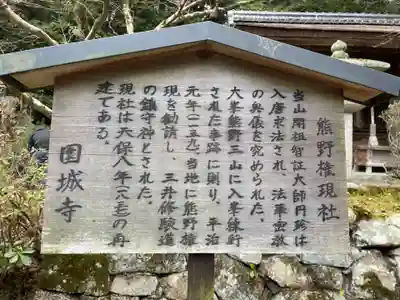 熊野権現社
当山開祖智証大師円珍は
入唐求法され、法華密教
の奥儀を究められた。
大峯熊野三山に入峯練行
された事跡に則り、平治
元年(一一五九)当地に熊野権
現を勧請し、三井修験道
の鎮守神とされた。
現社は天保八年(一八三七)の再
建である。
園城寺